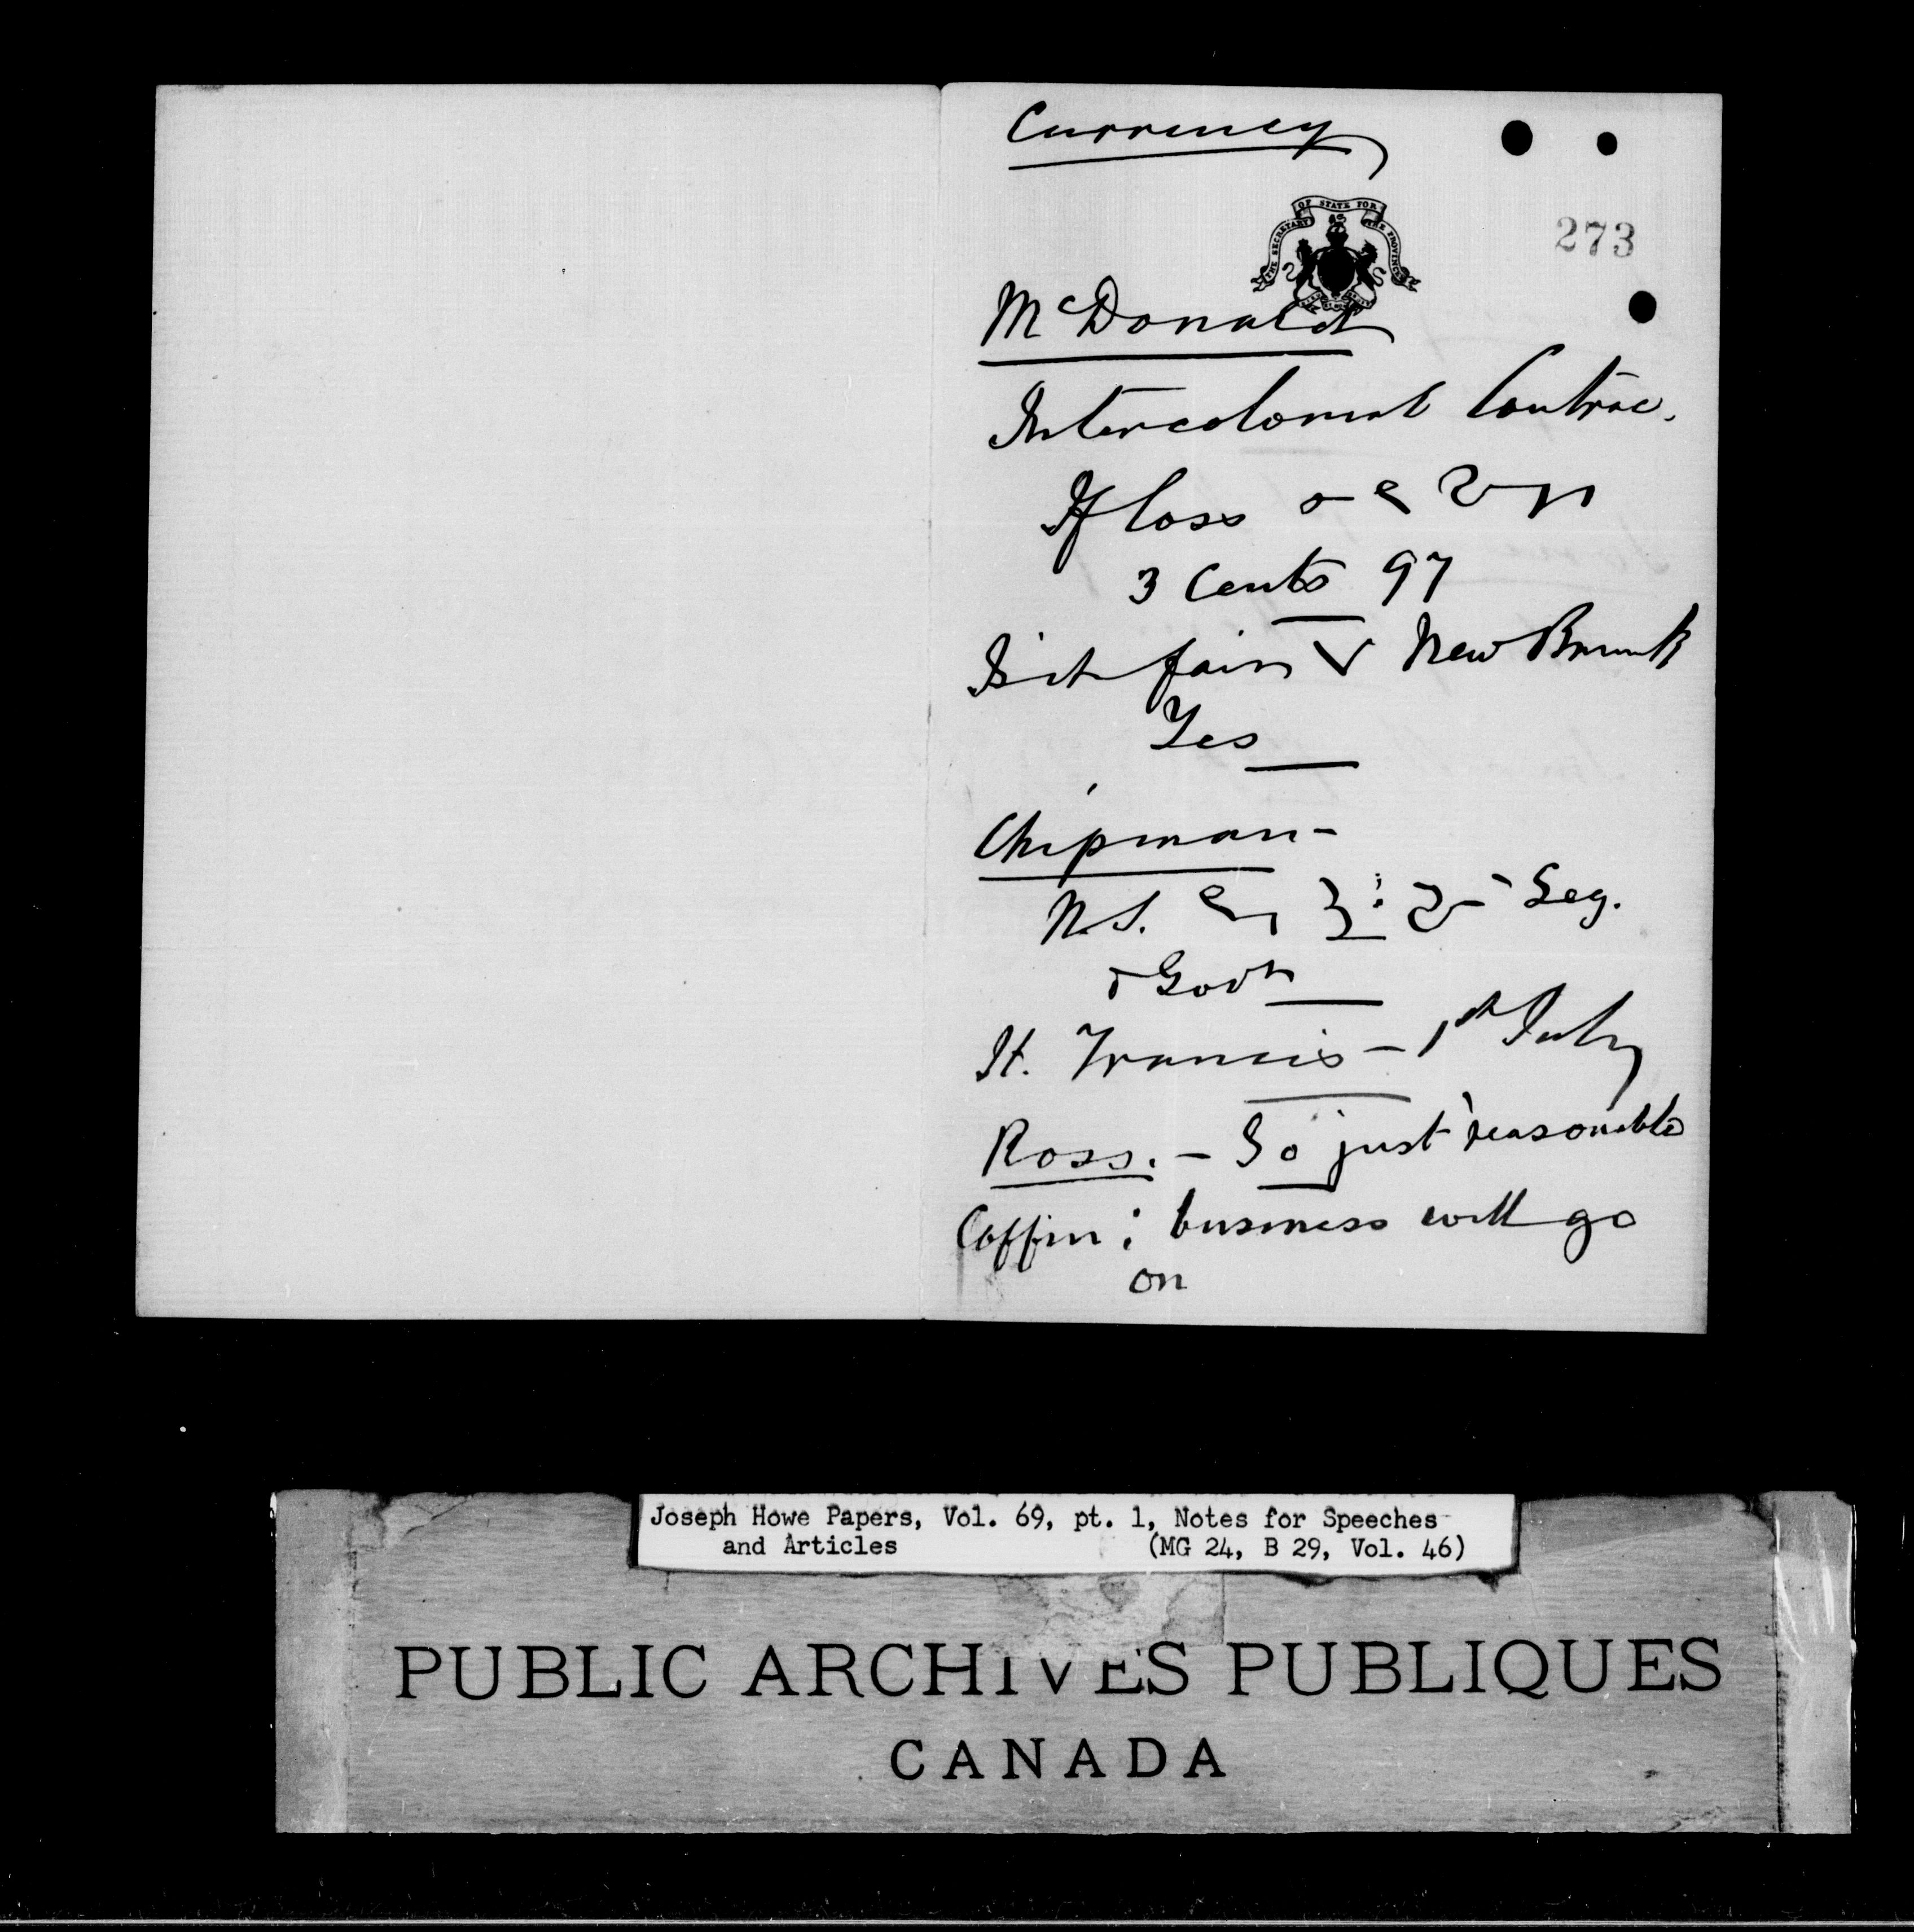 Currency
THE SECRETARY OF STATE FOR THE PROVINCES
273
McDonald
Intercolonial Contrac.
If loss
3 Cents 97
Is it fair New Brunk
Yes
Chipman -
N.S. Leg.
& Govt
St. Francis - 1st July
Ross. - So just & reasonable
Coffin : business will go
on
Joseph Howe Papers, Vol. 69, pt. 1, Notes for Speeches
and Articles (MG 24, B 29, Vol. 46)
PUBLIC ARCHIVES PUBLIQUES
CANADA